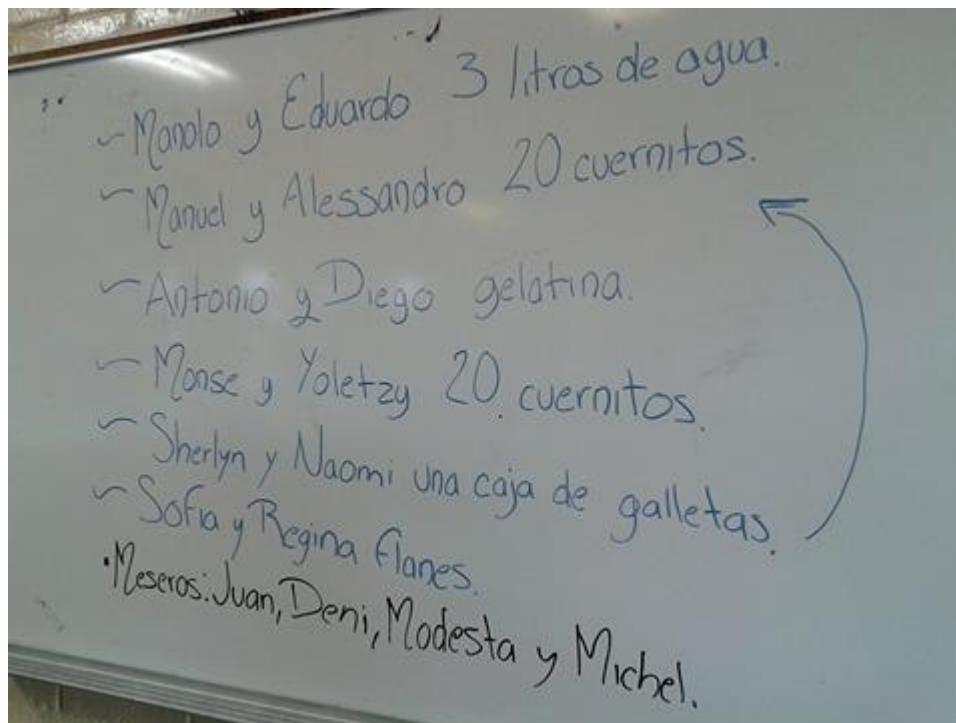 ~ Manolo y Eduardo 3 litros de agua.
~ Manuel y Alessandro 20 cuernitos.
~ Antonio y Diego gelatina.
~ Monse y Yoletzy 20 cuernitos.
~ Sherlyn y Naomi una caja de galletas.
~ Sofia y Regina flanes.
• Meseros: Juan, Deni, Modesta y Michel.